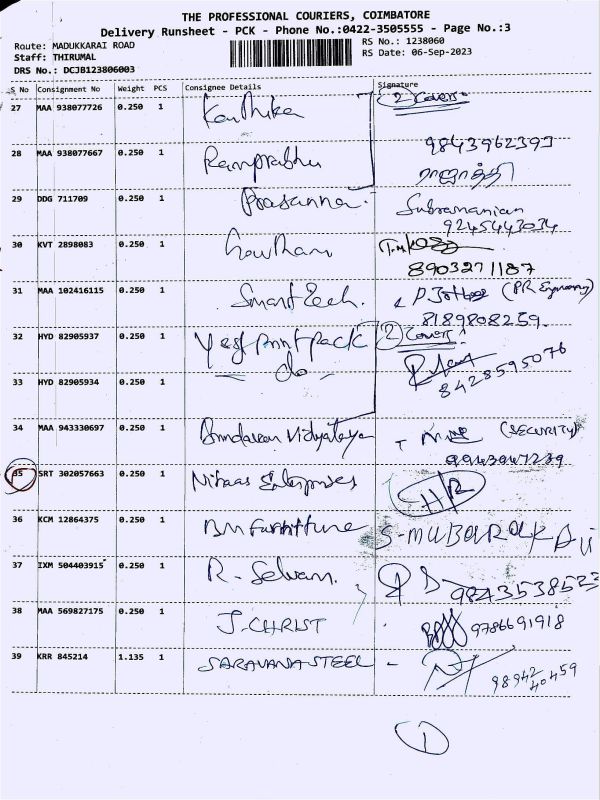 THE PROFESSIONAL COURIERS, COIMBATORE
Delivery Runsheet - PCK - Phone No.:0422-3505555 - Page No.:3
Route: MADUKKARAI ROAD RS No.: 1238060
Staff: THIRUMAL RS Date: 06-Sep-2023
DRS No.: DCJB123806003
S No Consignment No Weight PCS Consignee Details Signature
27 MAA 938077726 0.250 1 Karthika 2 Covers
9843962393
28 MAA 938077667 0.250 1 Ramprabhu
29 DDG 711709 0.250 1 Prasanna Subramanian
9245443034
30 KVT 2898083 0.250 1 Gowtham
8903271187
31 MAA 102416115 0.250 1 Smart Tech. (PR Engineering)
8189808259.
32 HYD 82905937 0.250 1 Yes Print pack 2 Covers
8428595076
33 HYD 82905934 0.250 1 do
34 MAA 943330697 0.250 1 Brindavan Vidyalaya (SECURITY)
9943047239
35 SRT 302057663 0.250 1 Nihaas Enterprises HR
36 KCM 12864375 0.250 1 BM Furniture S-MUBARAK Ali
37 IXM 504403915 0.250 1 R. Selvam. 9843538523
38 MAA 569827175 0.250 1 J. CHRIST 9786691918
39 KRR 845214 1.135 1 SARAVANA STEEL - 98942 40459
1